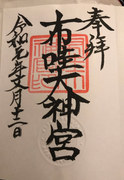 奉拝
布哇大神宮
令和元年文月十二日